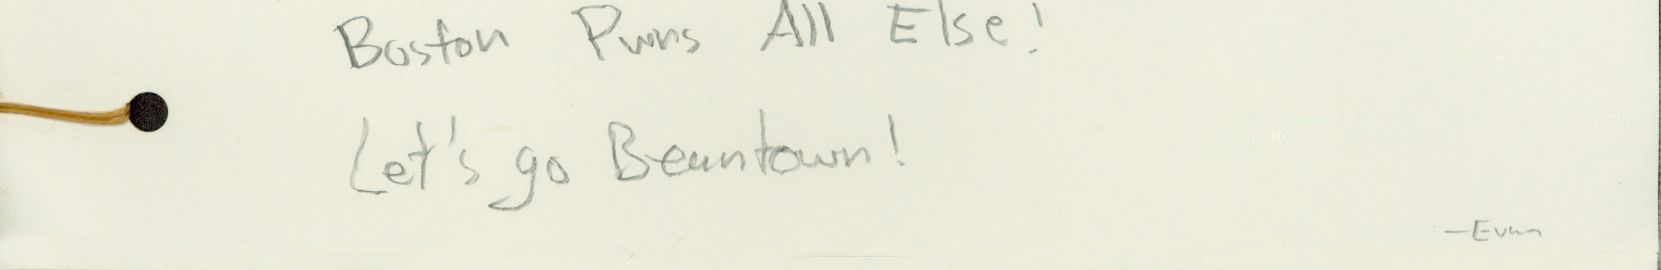 Boston Pwns All Else!
Let's go Beantown!
—Evan